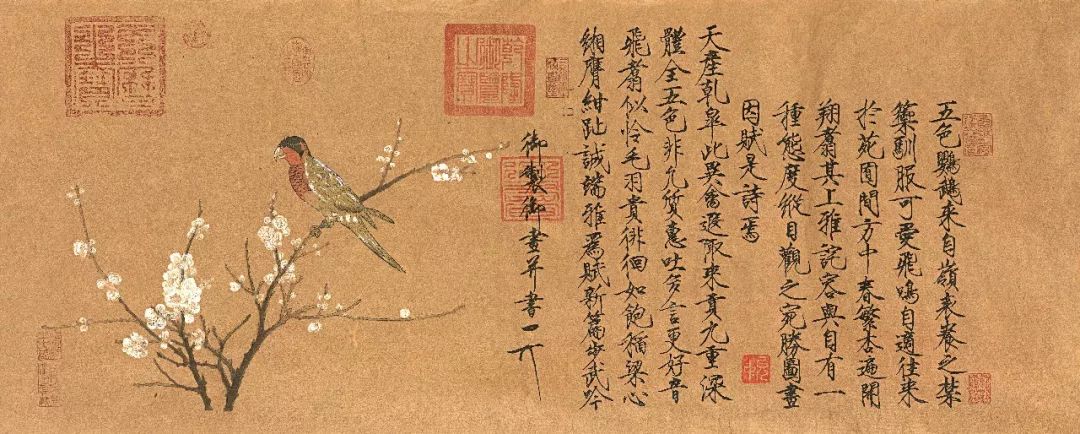 五色鸚鵡來自嶺表養之禁
籞馴服可愛飛鳴自適往來
於苑囿間方中春繁杏遍開
翔翥其上雅詫容與自有一
種態度縱目觀之宛勝圖畫
因賦是詩焉
天產乾皋此異禽遐陬來貢九重深
體全五色非凡質惠吐多言更好音
飛翥似憐毛羽貴徘徊如飽稻粱心
緗膺紺趾誠端雅爲賦新篇步武吟
御製御畫并書
乾隆御覽之寶